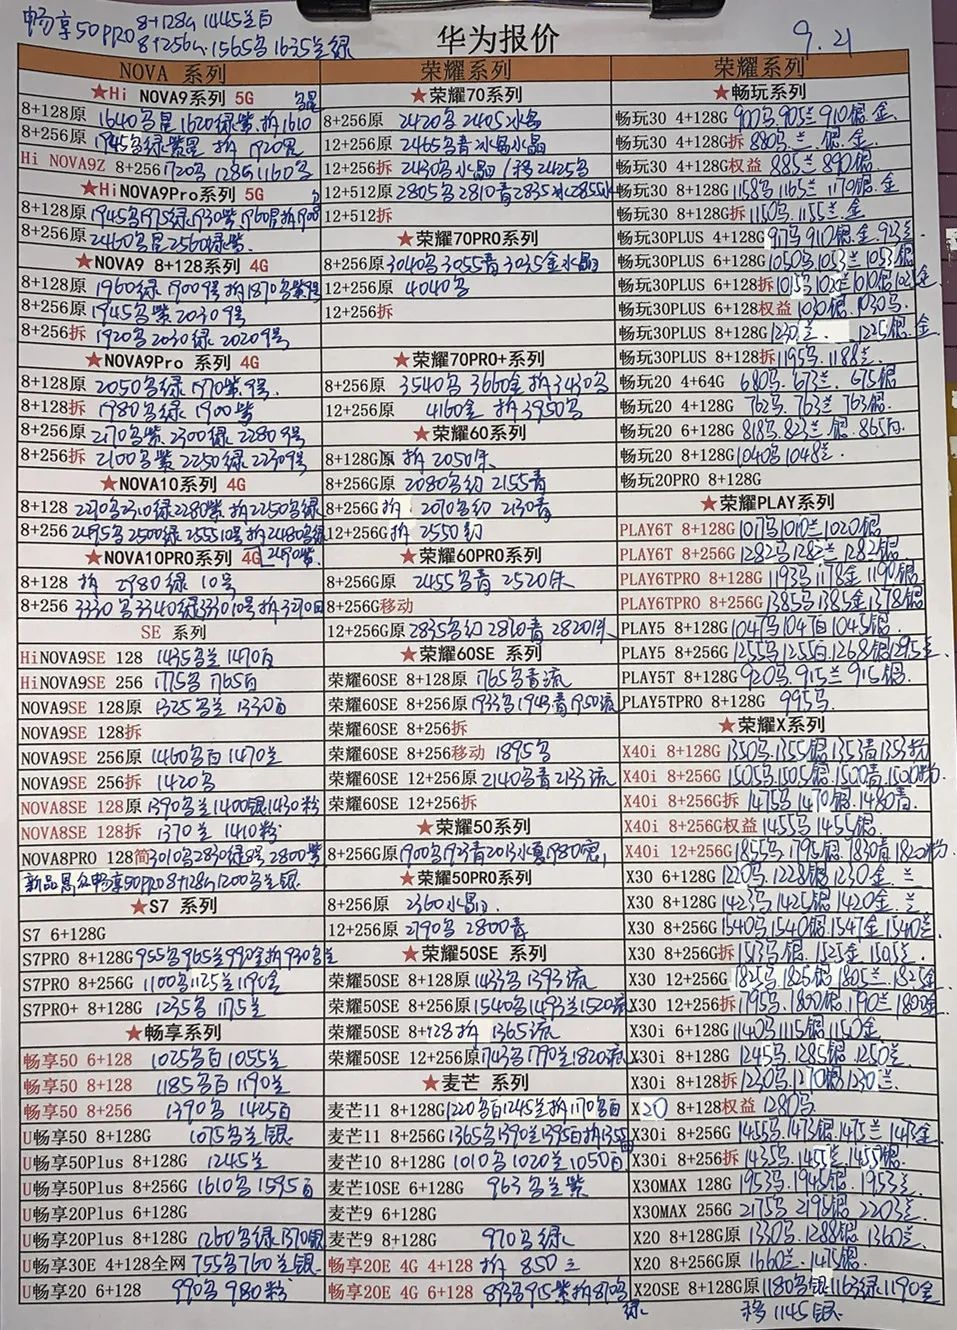 畅享50PRO 8+128G 1445兰白
8+256G 1565多 1635兰绿
华为报价
9.21
NOVA 系列
★Hi NOVA9系列 5G
8+128原 1640多星 1620绿紫 拆1610
8+256原 1945多绿紫星 拆 1920星
Hi NOVA9Z 8+256 1720多 128G 1160多
★HiNOVA9Pro系列 5G
8+128原 1945多 1975绿 1930紫
8+256原 2460多星 2560绿紫
★NOVA9 8+128系列 4G
8+128原 1960绿 19009号 拆1870多紫9号
8+256原 1945多紫 2030 9号
8+256拆 1920多 2030绿 2020 9号
★NOVA9Pro 系列 4G
8+128原 2050多绿 1970紫.9号.
8+128拆 1980多绿 1900紫
8+256原 2170多紫 2300绿 2280 9号
8+256拆 2100多紫 2250绿 2230 9号
★NOVA10系列 4G
8+128 2270多 2310绿 2280紫 拆2250多绿
8+256 2495多 2500绿 2555 10号 拆2480多绿
★NOVA10PRO系列 4G 2490紫
8+128 拆 2980绿 10号
8+256 3330多 3340绿 3330 10号
SE 系列
HiNOVA9SE 128 1435多兰 1470白
HiNOVA9SE 256 1775多 1765白
NOVA9SE 128原 1325多兰 1330白
NOVA9SE 128拆
NOVA9SE 256原 1460多白 1470兰
NOVA9SE 256拆 1420多
NOVA8SE 128原 1390多兰 1400银 1430粉
NOVA8SE 128拆 1370兰 1410粉
NOVA8PRO 128简 3010多 2830绿8号 2800紫
新品 畅享50PRO 8+128G 1200多兰银
★S7 系列
S7 6+128G
S7PRO 8+128G 955多 965兰 990金 拆930多兰
S7PRO 8+256G 1100多 1125兰 1190金
S7PRO+ 8+128G 1235多 1175兰
★畅享系列
畅享50 6+128 1025多白 1055兰
畅享50 8+128 1185多白 1190兰
畅享50 8+256 1390多 1425白
U畅享50 8+128G 1075多兰银
U畅享50Plus 8+128G 1245兰
U畅享50Plus 8+256G 1610多 1595白
U畅享20Plus 6+128G
U畅享20Plus 8+128G 1260多绿 1370银
U畅享30E 4+128全网 755多 760兰银
U畅享20 6+128 990多 980粉
荣耀系列
★荣耀70系列
8+256原 2420多 2405冰晶
12+256原 2465多青冰晶水晶
12+256拆 2430多水晶 / 移 2425多
12+512原 2805多 2810青 2835冰 2855水
12+512拆
★荣耀70PRO系列
8+256原 3040多 3055青 3035金水晶
12+256原 4040多
12+256拆
★荣耀70PRO+系列
8+256原 3540多 3660金 拆3430多
12+256原 4160金 拆3950多
★荣耀60系列
8+128G原 拆 2050朱
8+256G原 2080多幻 2155青
8+256G 拆 2070多幻 2130青
12+256G 拆 2550幻
★荣耀60PRO系列
8+256G原 2455多青 2520朱
8+256G移动
12+256G原 2835多幻 2870青 2820朱.
★荣耀60SE 系列
荣耀60SE 8+128原 1765多青流
荣耀60SE 8+256原 1933多 1943青 1950流
荣耀60SE 8+256拆
荣耀60SE 8+256移动 1895多
荣耀60SE 12+256原 2140多青 2133流
荣耀60SE 12+256拆
★荣耀50系列
8+256G原 1900多 1923青 2013水夏 1980
★荣耀50PRO系列
8+256原 2360水晶
12+256原 2790多 2800青
★荣耀50SE 系列
荣耀50SE 8+128原 1433多 1393流
荣耀50SE 8+256原 1540多 1493兰 1520流
荣耀50SE 8+128拆 1365流
荣耀50SE 12+256原 1743多 1790兰 1820流
★麦芒 系列
麦芒11 8+128G 1220多白 1245兰 拆1170多白
麦芒11 8+256G 1365多 1390兰 1395白 拆1355
麦芒10 8+128G 1010多 1020兰 1050白
麦芒10SE 6+128G 963多兰紫
麦芒9 6+128G
麦芒9 8+128G 970多绿
畅享20E 4G 4+128 拆 850兰
畅享20E 4G 6+128 893多 915紫 拆870多绿
荣耀系列
★畅玩系列
畅玩30 4+128G 900多 905兰 910银.金.
畅玩30 4+128G拆 880多 兰.银.金
畅玩30 4+128G权益 885兰 890银
畅玩30 8+128G 1158多 1165兰 1170银.金
畅玩30 8+128G拆 1150多.1155兰.金
畅玩30PLUS 4+128G 917多 910银.金.923兰
畅玩30PLUS 6+128G 1050多 1053兰 1053银
畅玩30PLUS 6+128拆 1015多 1020兰 1010银
畅玩30PLUS 6+128权益 1030银.1030多.
畅玩30PLUS 8+128G 1230兰 1225银.金
畅玩30PLUS 8+128拆 1195多.1188兰.
畅玩20 4+64G 680多.673兰.675银
畅玩20 4+128G 762多.763兰 763银.
畅玩20 6+128G 818多.823兰.银.865白.
畅玩20 8+128G 1040多 1048兰.
畅玩20PRO 8+128G
★荣耀PLAY系列
PLAY6T 8+128G 1017多 1010兰 1020银
PLAY6T 8+256G 1282多 1282兰 1282银
PLAY6TPRO 8+128G 1193多 1178金 1190银
PLAY6TPRO 8+256G 1385多 1385金 1378银
PLAY5 8+128G 1047多 1047白 1045银.
PLAY5 8+256G 1255多 1255白 1268银 1295兰.
PLAY5T 8+128G 920多.915兰 915银.
PLAY5TPRO 8+128G 995多
★荣耀X系列
X40i 8+128G 1350多.1355银 1353青 1353粉
X40i 8+256G 1505多 1505银.1500青.1500粉.
X40i 8+256G拆 1475多 1470银.1480青.
X40i 8+256G权益 1455多 1455银.
X40i 12+256G 1855多.1795银.1830青 1820粉
X30 6+128G 1220多.1228银.1230金.兰
X30 8+128G 1423多 1425银.1420金.兰
X30 8+256G 1540多 1540银.1547金 1540兰.
X30 8+256G拆 1513多.银.1525金.1505兰.
X30 12+256G 1825多.1825银.1805兰.1825金
X30 12+256拆 1795多.1800银.1790兰 1800金
X30i 6+128G 1140多 1115银 1150金
X30i 8+128G 1245多.1285银.1250兰
X30i 8+128拆 1230多.1270银 1230兰.
X20 8+128权益 1280多
X30i 8+256G 1455多.1473银.1475兰 1473金
X30i 8+256拆 1435多.1455兰.1455银.
X30MAX 128G 1953多.1945银.1953兰.
X30MAX 256G 2175多 2195银 2203兰.
X20 8+128G原 1330多.1288银.1360兰.
X20 8+256G原 1660兰.1475银.
X20SE 8+128G原 1180多银 1163绿 1190金
移 1145银.